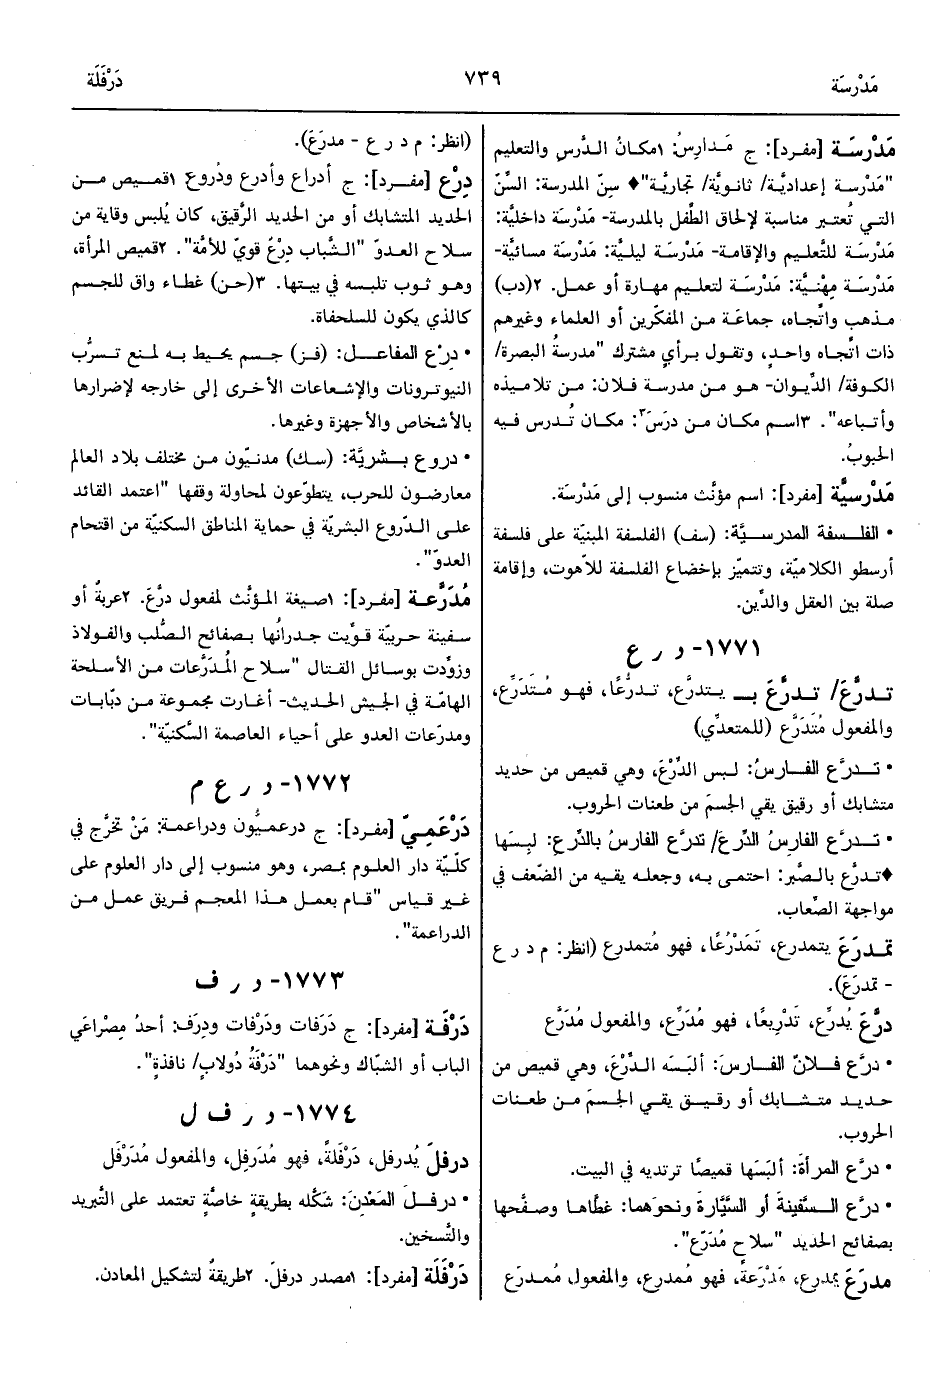 مَدْرسَة
٧٣٩
دَرْفَلَة
مَدْرسَة [مفرد]: ج مَدارسُ: ١مكانُ الدَّرس والتعليم
"مَدْرسة إعداديَّة/ ثانويَّة/ تجاريَّة"♦ سِنّ المدرسة: السِّنّ
التي تُعتبر مناسبة لإلحاق الطِّفل بالمدرسة- مَدْرسَة داخليَّة:
مَدْرسَة للتَّعليم والإقامة- مَدْرسَة ليليَّة: مَدْرسَة مسائيَّة-
مَدْرسَة مِهْنيَّة: مَدْرسَة لتعليم مهارة أو عمل. ٢(دب)
مذهب واتِّجاه، جماعَة من المفكّرين أو العلماء وغيرهم
ذات اتِّجاه واحدٍ، وتقول برأي مشترك "مدرسةُ البصرة/
الكوفة/ الدِّيوان- هو من مدرسة فلان: من تلاميذه
وأتباعه". ٣اسم مكان من درَسَ٣: مكان تُدرس فيه
الحبوبُ.
مَدْرسيَّة [مفرد]: اسم مؤنَّث منسوب إلى مَدْرسَة.
• الفلسفة المدرسيَّة: (سف) الفلسفة المبنيّة على فلسفة
أرسطو الكلاميّة، وتتميّز بإخضاع الفلسفة للاَّهوت، وإقامة
صلة بين العقل والدِّين.
١٧٧١- د ر ع
تدرَّعَ/ تدرَّعَ بـ يتدرَّع، تدرُّعًا، فهو مُتدَرِّع،
والمفعول مُتَدَرَّع (للمتعدِّي)
• تدرَّع الفارسُ: لبس الدِّرْعَ، وهي قميص من حديد
متشابك أو رقيق يقي الجسمَ من طعنات الحروب.
• تدرَّع الفارسُ الدِّرعَ/ تدرَّع الفارسُ بالدِّرع: لبِسَها
♦تدرَّع بالصَّبر: احتمى به، وجعله يقيه من الضّعف في
مواجهة الصِّعاب.
تمدرَعَ يتمدرع، تَمَدْرُعًا، فهو مُتمدرع (انظر: م د ر ع
- تمدرَعَ).
درَّعَ يُدرِّع، تَدْريعًا، فهو مُدَرِّع، والمفعول مُدَرَّع
• درَّع فلانٌ الفارسَ: ألبَسه الدِّرْعَ، وهي قميص من
حديد متشابك أو رقيق يقي الجسمَ من طعنات
الحروب.
• درَّع المرأةَ: ألبَسَها قميصًا ترتديه في البيت.
• درَّع السَّفينةَ أو السَّيَّارةَ ونحوَهما: غطَّاها وصفَّحها
بصفائح الحديد "سلاح مُدَرَّع".
مدرَعَ يمدرع، مَدْرَعةً، فهو مُمدرِع، والمفعول مُمدرَع
(انظر: م د ر ع - مدرَعَ).
دِرْع [مفرد]: ج أدراع وأدرع ودُروع ١قميص من
الحديد المتشابك أو من الحديد الرَّقيق، كان يُلبس وقاية من
سلاح العدوّ "الشَّباب دِرْعٌ قويّ للأمَّة". ٢قميص المرأة،
وهو ثوب تلبسه في بيتها. ٣(حن) غطاء واق للجسم
كالذي يكون للسلحفاة.
• درْع المفاعل: (فز) جسم يحيط به لمنع تسرُّب
النيوترونات والإشعاعات الأخرى إلى خارجه لإضرارها
بالأشخاص والأجهزة وغيرها.
• دروع بشريَّة: (سك) مدنيّون من مختلف بلاد العالم
معارضون للحرب، يتطوَّعون لمحاولة وقفها "اعتمد القائد
على الدّروع البشريّة في حماية المناطق السكنيّة من اقتحام
العدوّ".
مُدَرَّعة [مفرد]: ١صيغة المؤنَّث لمفعول درَّعَ. ٢عربةٌ أو
سفينة حربيّة قوِّيت جدرانُها بصفائح الصُّلب والفولاذ
وزوِّدت بوسائل القتال "سلاح المُدَرَّعات من الأسلحة
الهامّة في الجيش الحديث- أغارت مجموعة من دبّابات
ومدرّعات العدو على أحياء العاصمة السَّكنيَّة".
١٧٧٢- د ر ع م
دَرْعَميّ [مفرد]: ج درعميُّون ودراعمة: مَنْ تخرَّج في
كلّيَّة دار العلوم بمصر، وهو منسوب إلى دار العلوم على
غير قياس "قام بعمل هذا المعجم فريق عمل من
الدراعمة".
١٧٧٣- د ر ف
دَرْفَة [مفرد]: ج دَرَفات ودَرْفات ودِرَف: أحدُ مِصْراعَي
الباب أو الشبّاك ونحوهما "دَرْفةُ دُولابٍ/ نافذةٍ".
١٧٧٤- د ر ف ل
درفلَ يُدرفل، دَرْفَلةً، فهو مُدَرفِل، والمفعول مُدَرْفَل
• درفلَ المَعْدِنَ: شكَّله بطريقةٍ خاصَّةٍ تعتمد على التَّبريد
والتَّسخين.
دَرْفَلَة [مفرد]: ١مصدر درفلَ. ٢طريقةٌ لتشكيل المعادن.